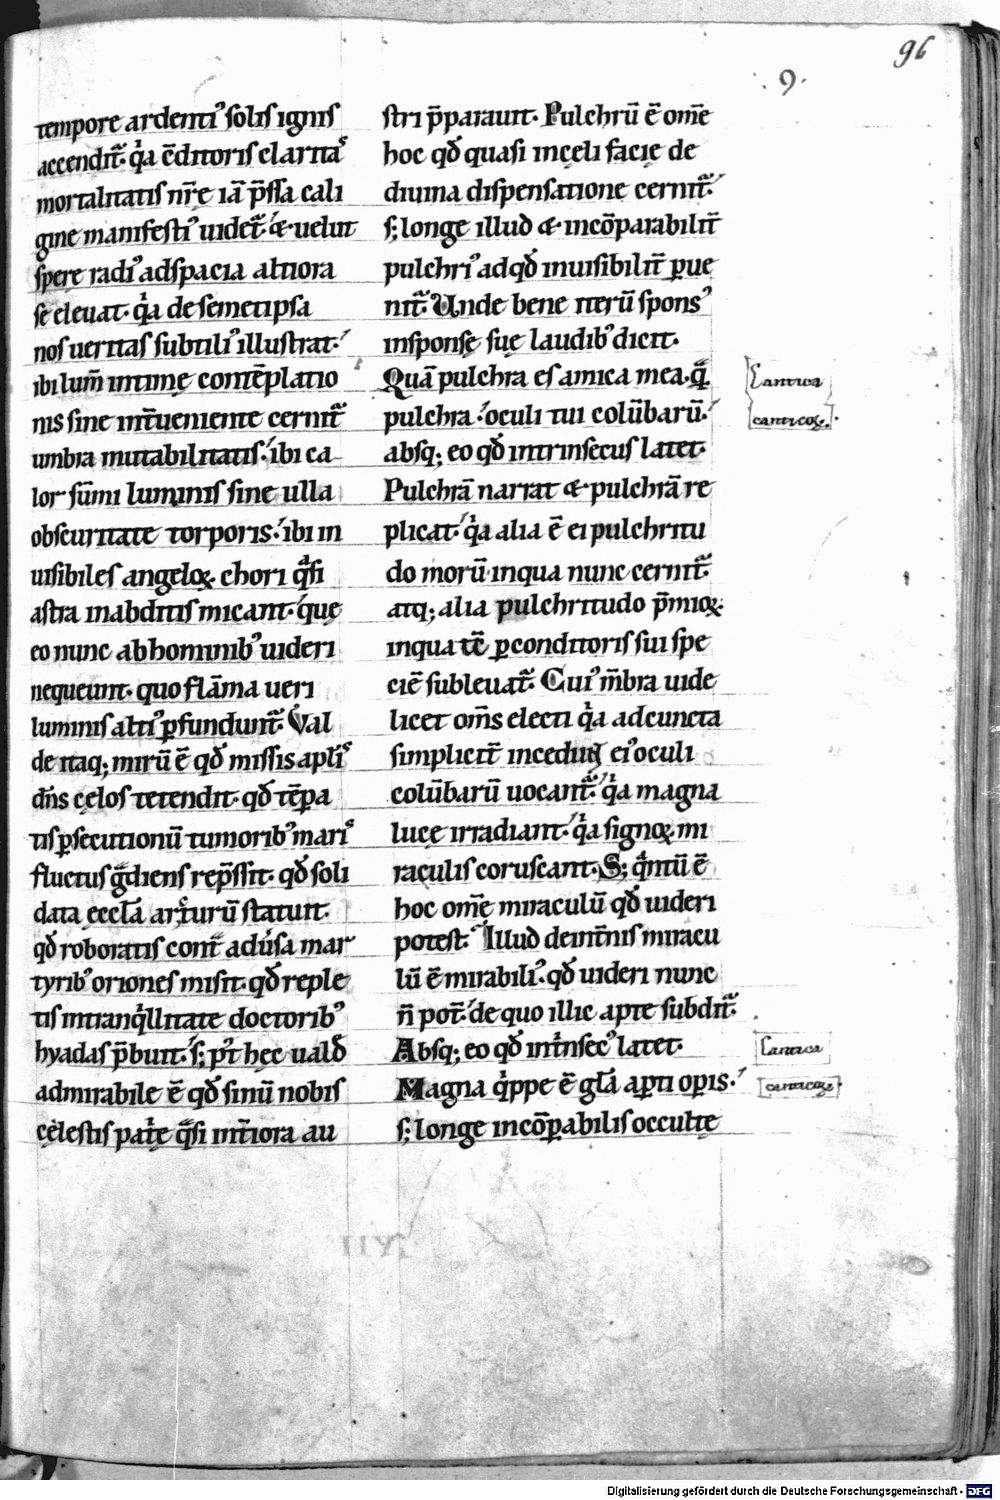 96
.9.
tempore ardenti᾽ solis ignis
accendit᷑. q̓a c̄ditoris claritas
mortalitatis nr̄ę iā p̄ssa cali
gine manifesti᾽ uidet᷑. & uelut
spere radi᾽ ad spacia altiora
se eleuat. q̓a de semetipsa
nos ueritas subtili᾽ illustrat.
ibi lum̄ intimę contēplatio
nis sine int̄ueniente cernit᷑
umbra mutabilitatis. ibi ca
lor sūmi luminis sine ulla
obscuritate torporis. ibi in
uisibiles angeloꝝ chori q̓si
astra in abditis micant. que
eo nunc ab hominib᾽ uideri
nequeunt. quo flāma ueri
luminis alti᾽ ꝑfundunt᷑. Val
de itaq; mirū ē qđ missis apl̄is
dn̄s cęlos tetendit. qđ tēpa
tis ꝑsecutionū tumorib᾽ maris
fluctus g̓diens rep̄ssit. qđ soli
data eccl̄a arturū statuit.
qđ roboratis cont̄ aduersa mar
tyrib᾽ oriones misit. qđ reple
tis in tranq̓llitate doctorib᾽
hyadas p̄buit. s; p᾽t hęc ualđ
admirabile ē qđ sinū nobis
cęlestis pat̓ę q̓si int̄iora au
stri p̄parauit. Pulchrū ē om̄e
hoc qđ quasi in cęli facię de
diuina dispensatione cernit᷑.
s; longe illud & incōparabilit̄
pulchri᾽ ad qđ inuisibilit̄ ꝑue
nit᷑. Unde bene iterū spons᾽
in sponsę suę laudib᾽ dicit.
Quā pulchra es amica mea. q̄
pulchra. oculi tui colūbarū.
absq; eo qđ intrinsecus latet.
Pulchrā narrat & pulchrā re
plicat. q̓a alia ē ei pulchritu
do morū in qua nunc cernit᷑.
atq; alia pulchritudo p̄mioꝝ.
in qua tc̄ ꝑ conditoris sui spe
ciē subleuat᷑. Cui᾽ m̄bra uide
licet om̄s electi q̓a ad cuncta
simplicit̄ incedunt ei᾽ oculi
colūbarū uocant᷑. q̓a magna
lucę irradiant. q̓a signoꝝ mi
raculis coruscant. S; q̓ntū ē
hoc om̄e miraculū qđ uideri
potest. Illud de int̄nis miracu
lū ē mirabili᾽. qđ uideri nunc
n̄ pot̄. de quo illic apte subdit᷑.
Absq; eo qđ int̓nsec᾽ latet.
Magna q̓ppe ē gl̄a apti opis.
s; longe incōꝑabilis occultę
Cantica
canticoꝝ.
Cantica
canticoꝝ.
Digitalisierung gefördert durch die Deutsche Forschungsgemeinschaft - DFG